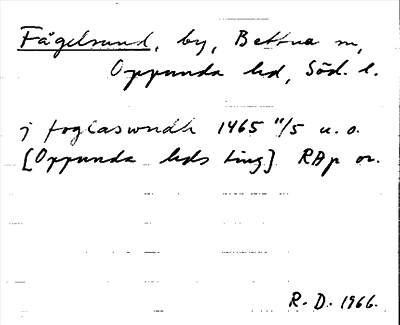 Fågelsund, by, Bettna sn,
Oppunda hd, Söd. l.
j foglaswndh 1465 11/5 u. o.
[Oppunda hds ting] RAp or.
R. D. 1966.